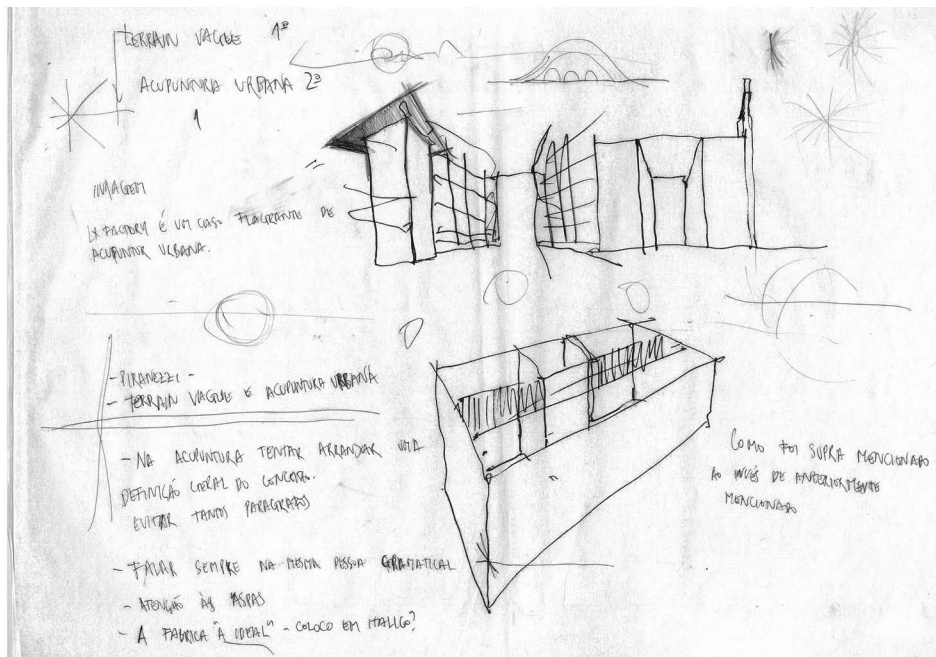 TERRAIN VAGUE 1º
ACUPUNTURA URBANA 2º
1
IMAGEM
LX FACTORY É UM CASO FLAGRANTE DE
ACUPUNTUR URBANA.
- PIRANEZZI -
- TERRAIN VAGUE E ACUPUNTURA URBANA
- NA ACUPUNTURA TENTAR ARRANJAR UMA
DEFINIÇÃO GERAL DO CONCEITO.
EVITAR TANTOS PARAGRAFOS
- FALAR SEMPRE NA MESMA PESSOA GRAMATICAL
- ATENÇÃO ÀS ASPAS
- A FABRICA "A IDEAL" - COLOCO EM ITALICO?
COMO FOI SUPRA MENCIONADO
AO INVÉS DE ANTERIORMENTE
MENCIONADO